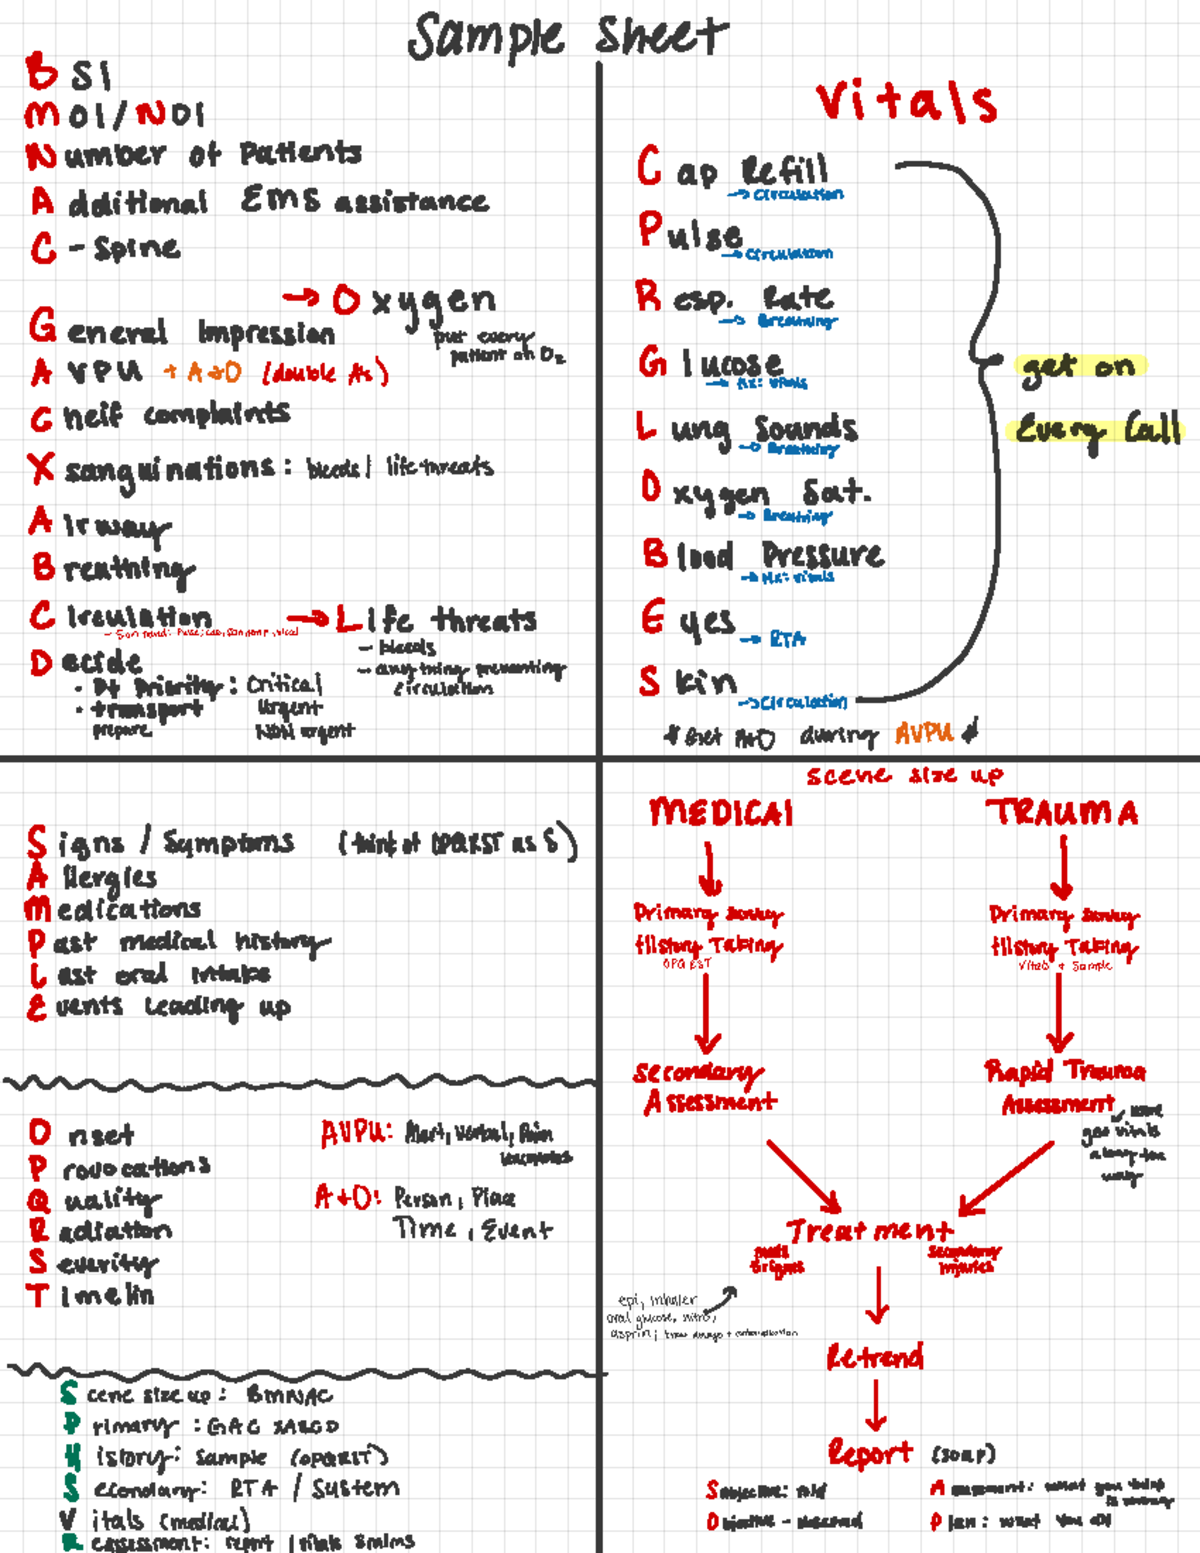 Sample Sheet
BSI
MOI/NOI
Number of Patients
Additional EMS assistance
C-Spine
→ Oxygen
put every
patient on O2
General Impression
AVPU + A+O (double As)
Cheif complaints
Xsanguinations: bleeds/ life threats
Airway
Breathing
Circulation
→ Life threats
- bleeds
- anything preventing
circulation
Decide
• Pt Priority: Critical
• transport Urgent
prepare Non urgent
Vitals
Cap Refill
→ Circulation
Pulse
→ Circulation
Resp. Rate
→ Breathing
Glucose
→ Hx: vitals
Lung Sounds
→ Breathing
Oxygen Sat.
→ Breathing
Blood Pressure
→ Hx: vitals
Eyes
→ RTA
Skin
→ Circulation
get on
Every Call
* Get A+O during AVPU *
Signs / Symptoms (think of OPQRST as S)
Allergies
Medications
Past medical history
Last oral intake
Events Leading up
Onset
Provocations
Quality
Radiation
Severity
Timelin
AVPU: Alert, Verbal, Pain
A+O: Person, Place
Time, Event
Scene size up: BMNAC
Primary: GAC XABCD
History: Sample (OPQRST)
Secondary: RTA / System
Vitals (medical)
Reassessment: report / vitals 5mins
scene size up
MEDICAL
Primary survey
History Taking
OPQRST
Secondary
Assessment
TRAUMA
Primary survey
History Taking
Vitals + Sample
Rapid Trauma
Assessment
get vitals
along the
way
Treatment
secondary
injuries
epi, inhaler
oral glucose, nitro,
asprin; know dosage + contraindication
Retrend
Report (soap)
Subjective: told
Objective - observed
Assessment: what you think
is wrong
Plan: what you did